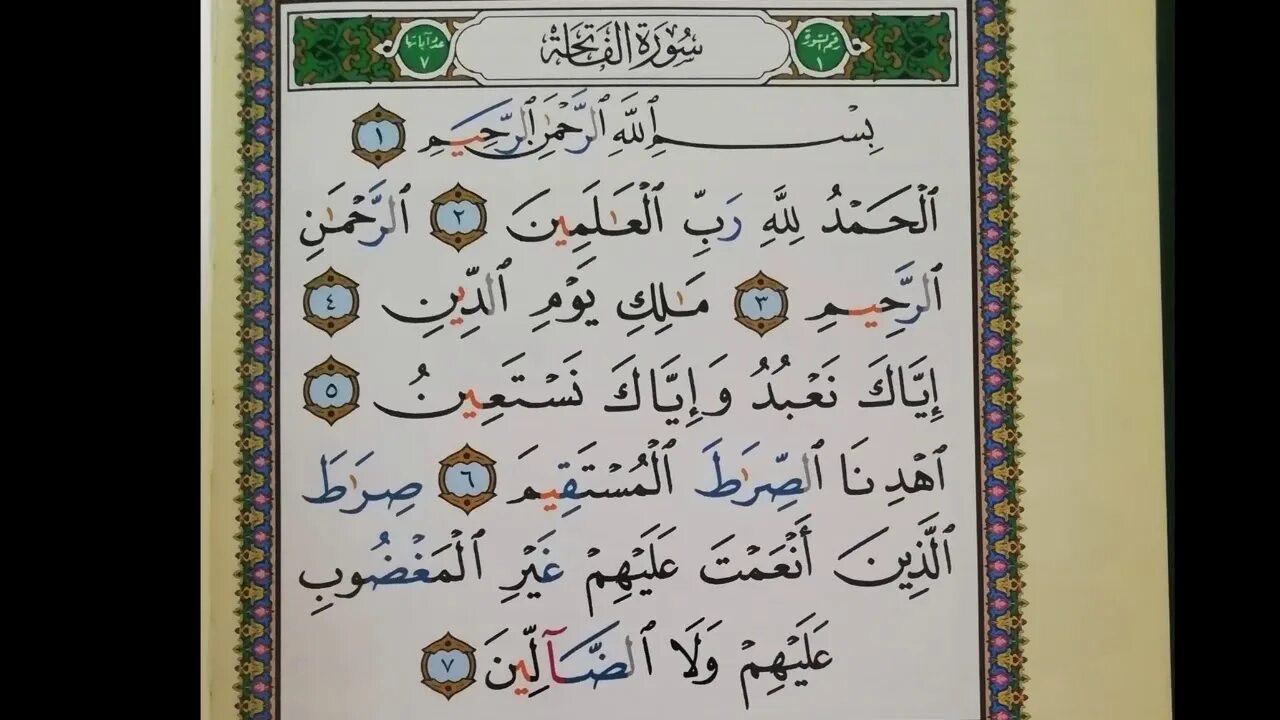 رقم السورة ١
سُورَةُ الفَاتِحَة
عدد آياتها ٧
بِسْمِ ٱللَّهِ ٱلرَّحْمَٰنِ ٱلرَّحِيمِ ١
ٱلْحَمْدُ لِلَّهِ رَبِّ ٱلْعَٰلَمِينَ ٢ ٱلرَّحْمَٰنِ
ٱلرَّحِيمِ ٣ مَٰلِكِ يَوْمِ ٱلدِّينِ ٤
إِيَّاكَ نَعْبُدُ وَإِيَّاكَ نَسْتَعِينُ ٥
ٱهْدِنَا ٱلصِّرَٰطَ ٱلْمُسْتَقِيمَ ٦ صِرَٰطَ
ٱلَّذِينَ أَنْعَمْتَ عَلَيْهِمْ غَيْرِ ٱلْمَغْضُوبِ
عَلَيْهِمْ وَلَا ٱلضَّآلِّينَ ٧